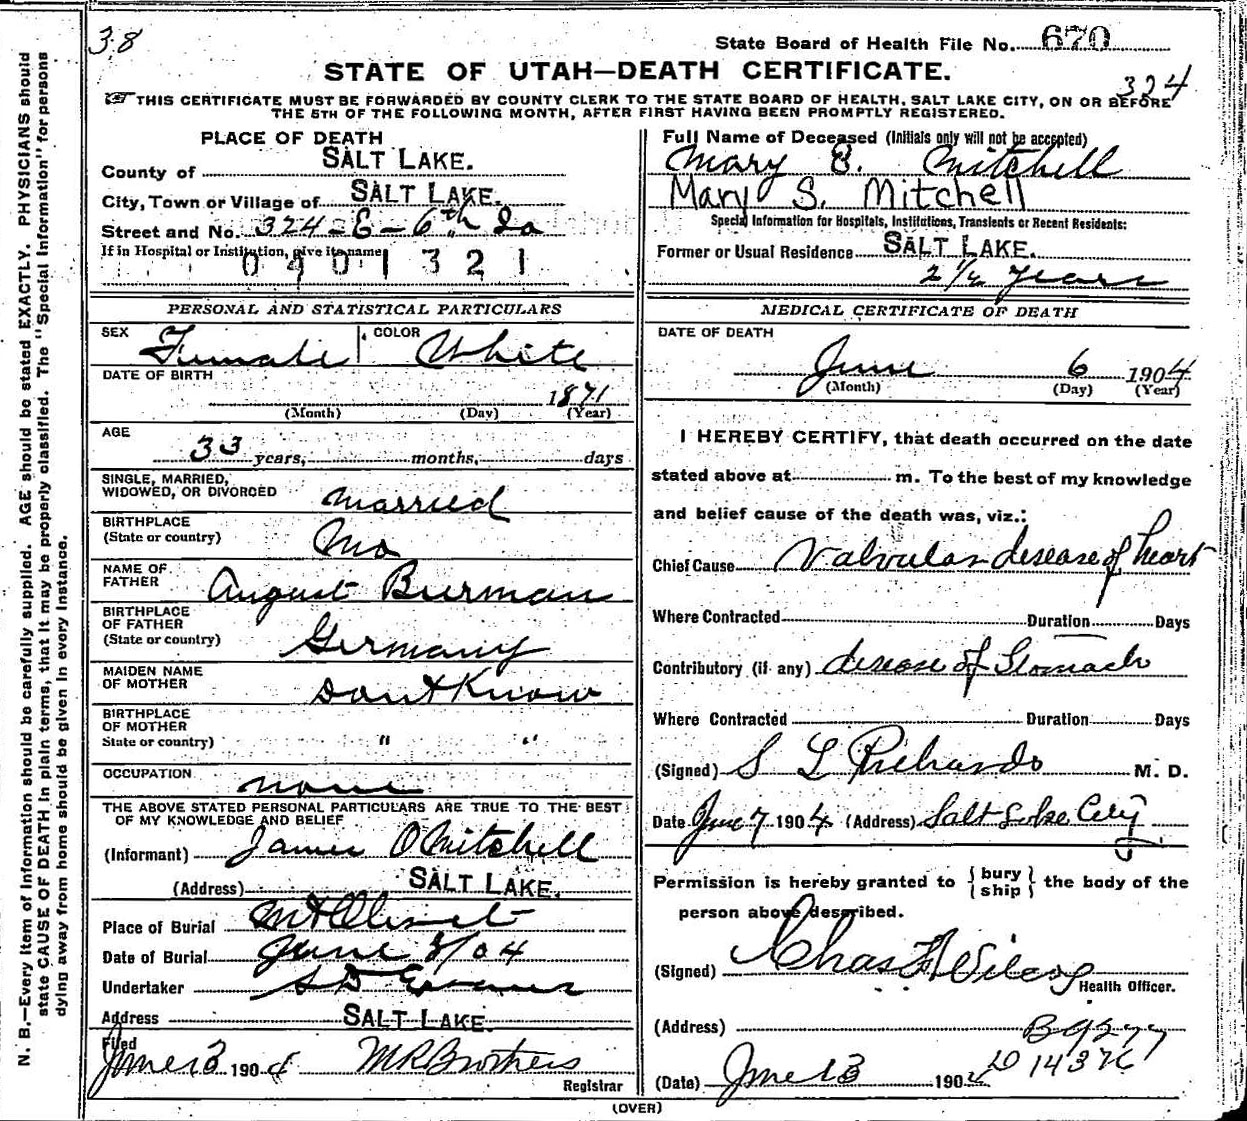 38
State Board of Health File No. 670
STATE OF UTAH—DEATH CERTIFICATE.
324
THIS CERTIFICATE MUST BE FORWARDED BY COUNTY CLERK TO THE STATE BOARD OF HEALTH, SALT LAKE CITY, ON OR BEFORE
THE 5TH OF THE FOLLOWING MONTH, AFTER FIRST HAVING BEEN PROMPTLY REGISTERED.
PLACE OF DEATH
County of SALT LAKE.
City, Town or Village of SALT LAKE.
Street and No. 324-E-6th So
If in Hospital or Institution, give its name
0401321
Full Name of Deceased (Initials only will not be accepted)
Mary S. Mitchell
Mary S. Mitchell
Special Information for Hospitals, Institutions, Transients or Recent Residents:
Former or Usual Residence SALT LAKE.
2 1/2 years
PERSONAL AND STATISTICAL PARTICULARS
SEX Female COLOR White
DATE OF BIRTH
1871
(Month) (Day) (Year)
AGE
33 years, months, days
SINGLE, MARRIED,
WIDOWED, OR DIVORCED married
BIRTHPLACE
(State or country) Mo
NAME OF
FATHER August Burman
BIRTHPLACE
OF FATHER
(State or country) Germany
MAIDEN NAME
OF MOTHER Dont Know
BIRTHPLACE
OF MOTHER
State or country) " "
OCCUPATION none
THE ABOVE STATED PERSONAL PARTICULARS ARE TRUE TO THE BEST
OF MY KNOWLEDGE AND BELIEF
(Informant) James O Mitchell
(Address) SALT LAKE.
Place of Burial Mt Olivet
Date of Burial June 8/04
Undertaker S D Evans
Address SALT LAKE.
Filed
June 13 1904 M R Brothers
Registrar
MEDICAL CERTIFICATE OF DEATH
DATE OF DEATH
June 6 1904
(Month) (Day) (Year)
I HEREBY CERTIFY, that death occurred on the date
stated above at m. To the best of my knowledge
and belief cause of the death was, viz.:
Chief Cause Valvular disease of heart
Where Contracted Duration Days
Contributory (if any) disease of Stomach
Where Contracted Duration Days
(Signed) S L Richards M. D.
Date June 7 1904 (Address) Salt Lake City
Permission is hereby granted to {bury
ship} the body of the
person above described.
(Signed) Chas F Wilcox
Health Officer.
(Address)
B9277
D 14376
(Date) June 13 1904
(OVER)
N. B.—Every item of information should be carefully supplied. AGE should be stated EXACTLY. PHYSICIANS should
state CAUSE OF DEATH in plain terms, that it may be properly classified. The "Special Information" for persons
dying away from home should be given in every instance.